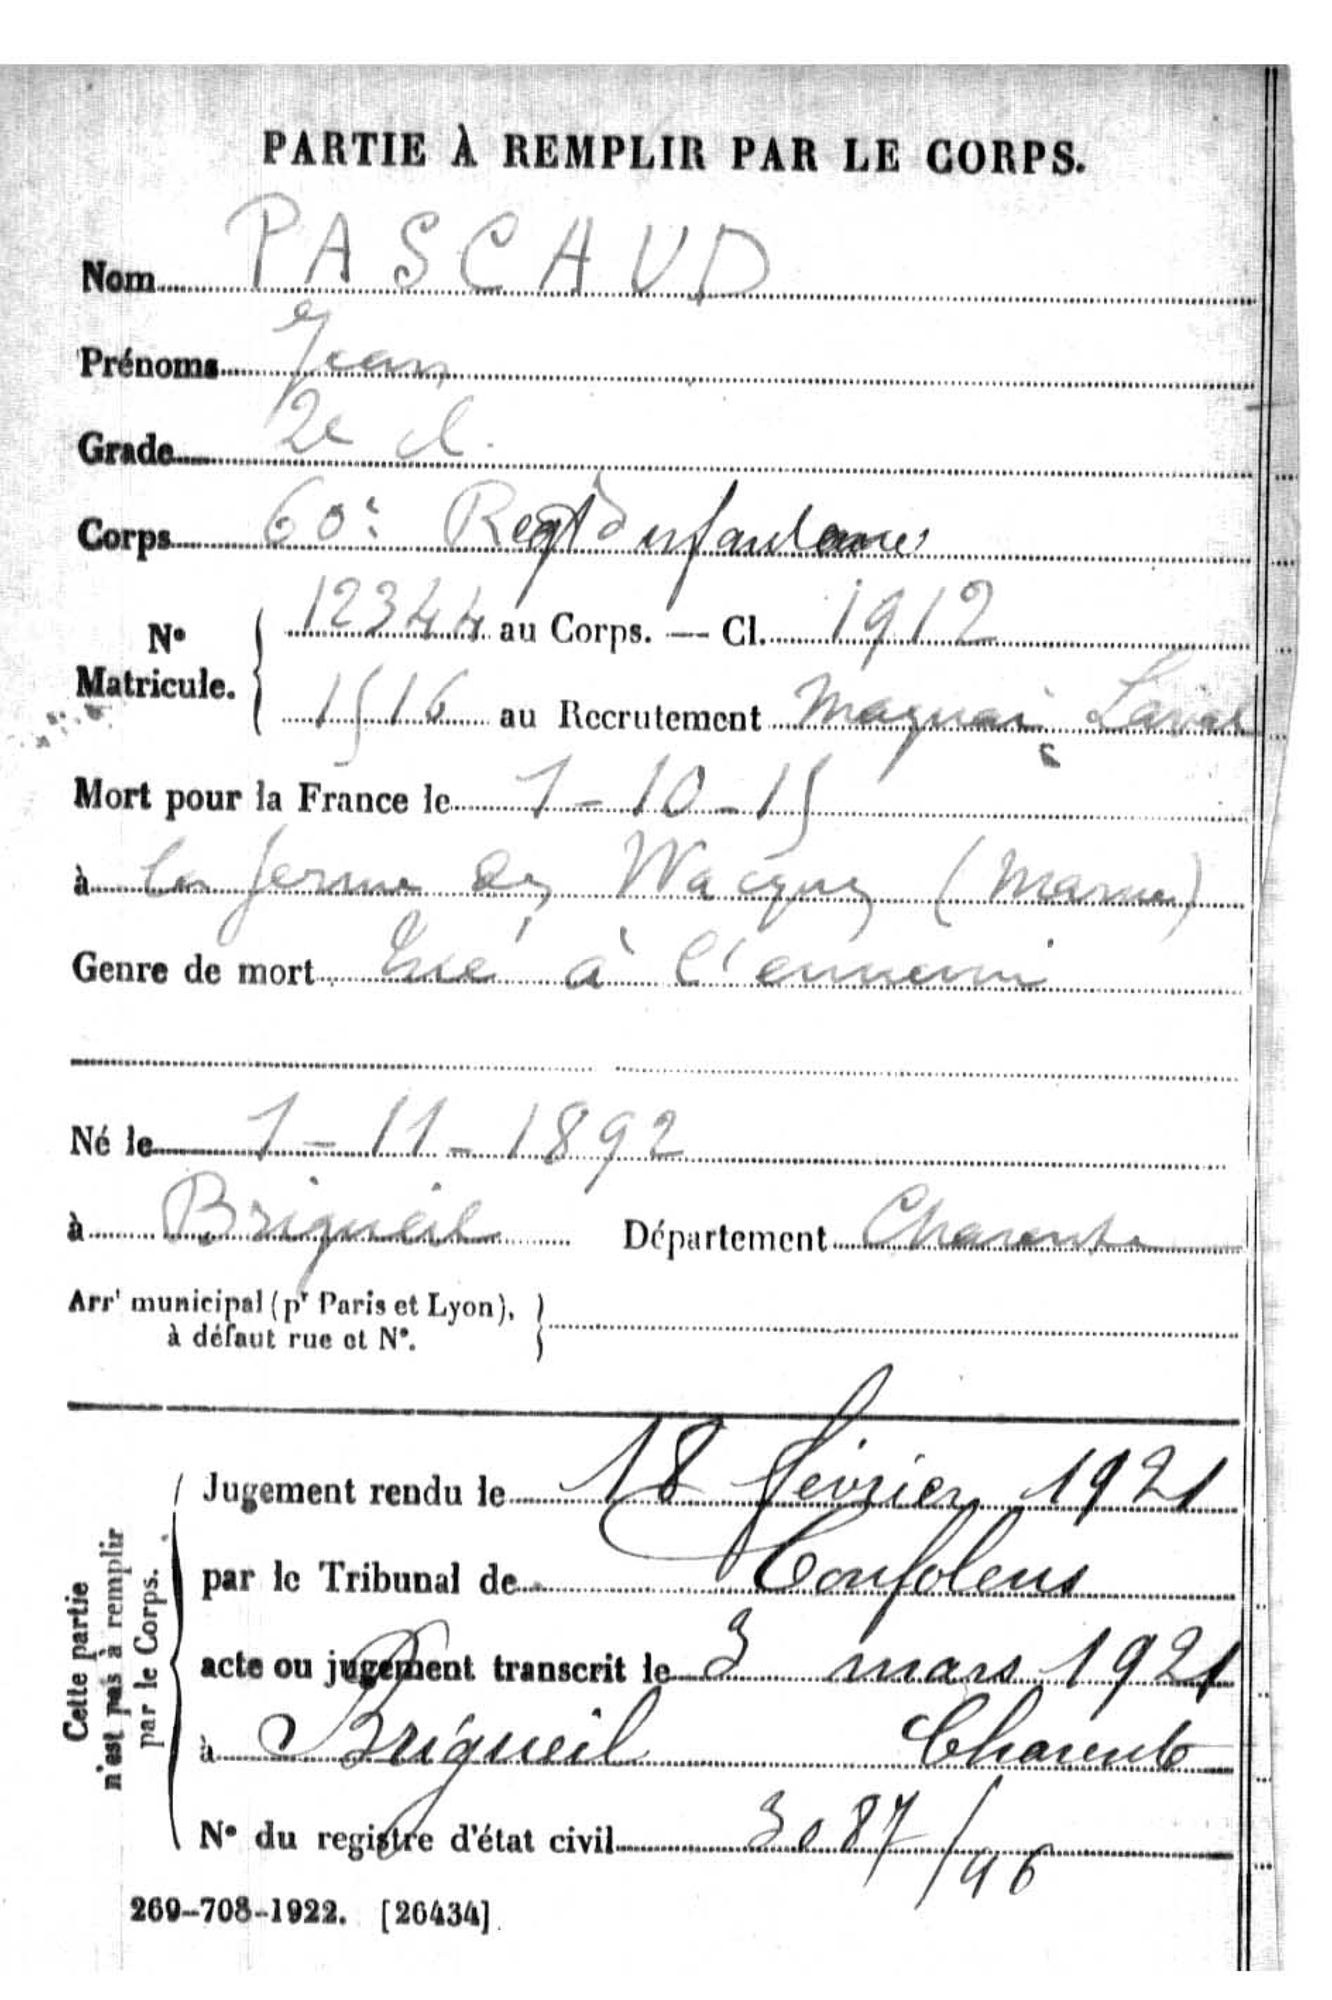 PARTIE À REMPLIR PAR LE CORPS.
Nom PASCAUD
Prénoms Jean
Grade 2e cl.
Corps 60e Regt d'infanterie
N° Matricule. 12344 au Corps. — Cl. 1912
1516 au Recrutement Magnac Laval
Mort pour la France le 1-10-15
à la ferme des Wacques (Marne)
Genre de mort tué à l'ennemi
Né le 1-11-1892
à Brigueil Département Charente
Arrt municipal (pr Paris et Lyon),
à défaut rue et N°.
Cette partie
n'est pas à remplir
par le Corps.
Jugement rendu le 18 février 1921
par le Tribunal de Confolens
acte ou jugement transcrit le 3 mars 1921
à Brigueil Charente
N° du registre d'état civil 3087/96
269-708-1922. [26434]